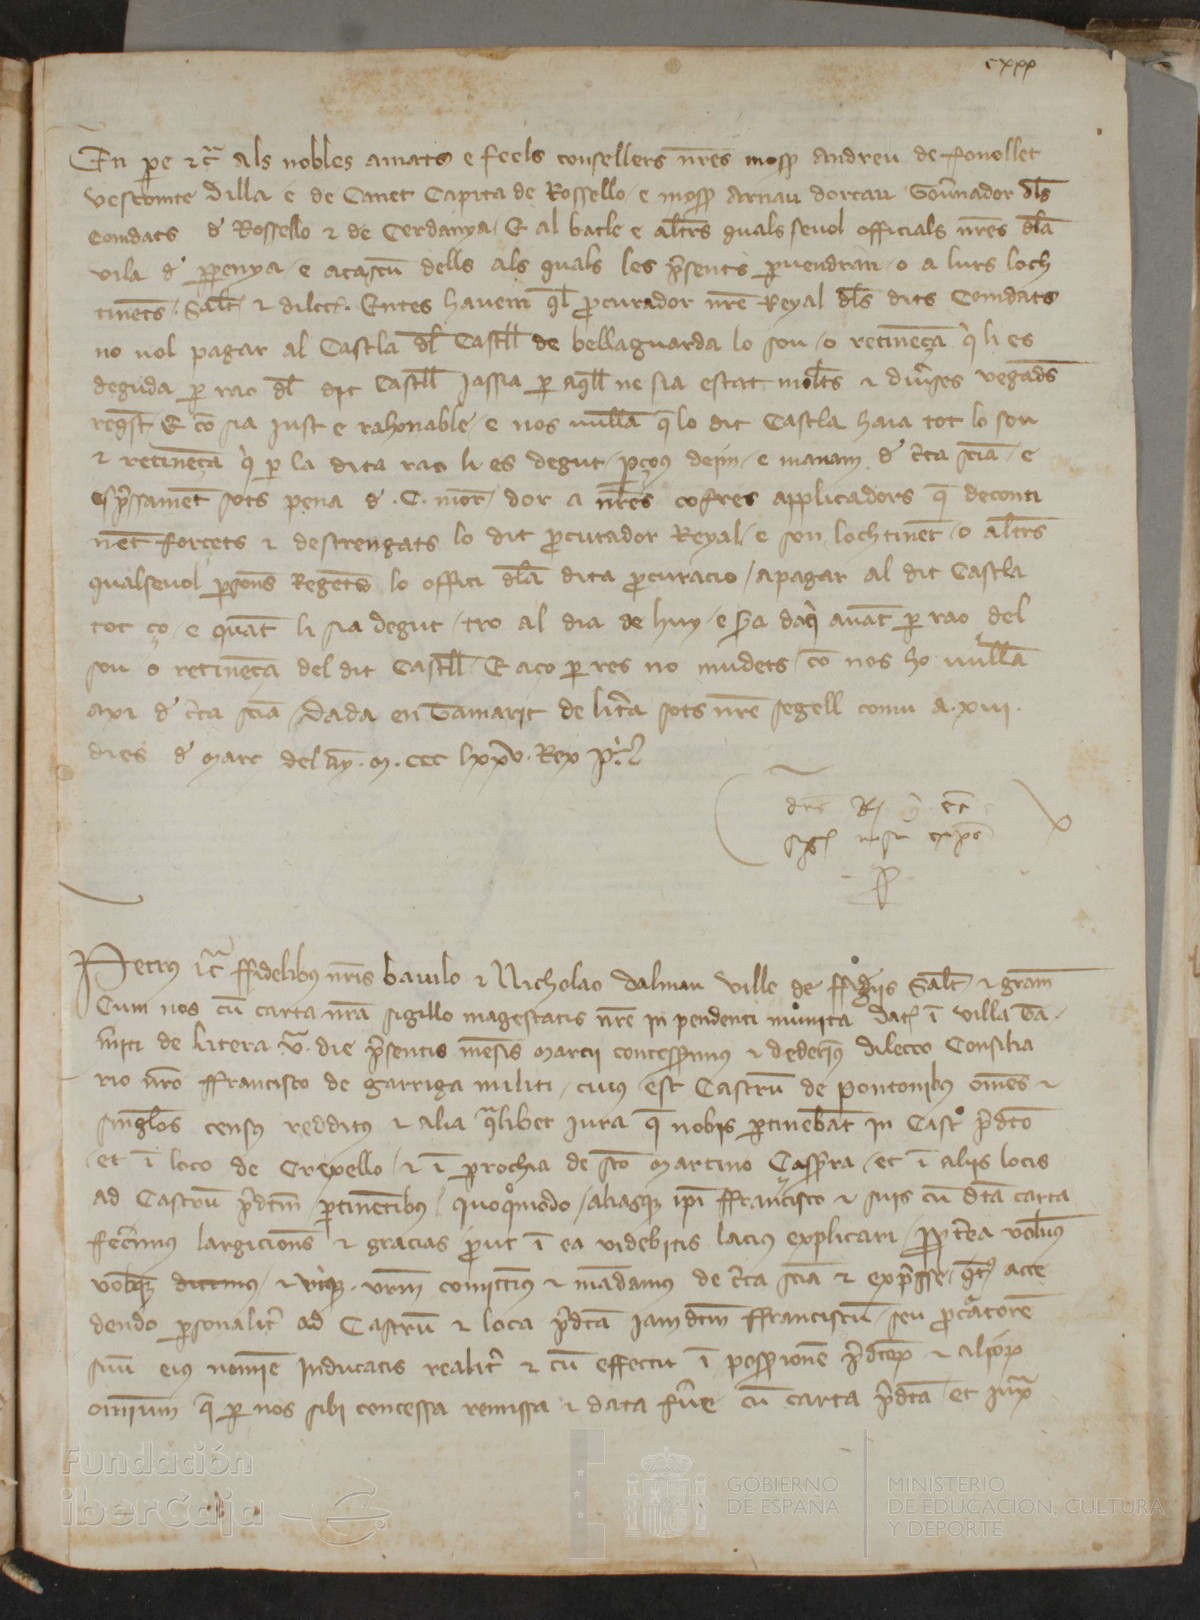 cxxx
En pere etc als nobles amats e feels consellers nres mossen Andreu de fonollet
vescomte dilla e de Canet Capita de Rossello e mossen Arnau dorcau Gouernador dls
Comdats d Rossello & de Cerdanya E al batle e altrs quals seuol officials nres dla
vila d perpenya e a cascu dells als quals les presents peruendran o a lurs loch
tinents Salt & dilecc Entes hauem ql procurador nre Reyal dls dits Comdats
no uol pagar al Castla dl Castell de bellaguarda lo sou o retinença qui li es
deguda per rao dl dit Castell jassia per aquell ne sia estat molts & diuerses vegads
request E com sia just e rahonable e nos vullam q lo dit Castla haia tot lo sou
& retinença qui per la dita rao li es degut perçous deim e manam d certa sciencia e
expressament sots pena d .C. mor dor a nres cofres applicadors que deconti
nent forcets & destrengats lo dit procurador Reyal e son lochtinent o altrs
qualseuol persons Regents lo offici dla dita procuracio apagar al dit Castla
tot ço e quant li sia degut tro al dia de huy e sera daqui auant per rao del
sou o retinença del dit Castell E aço per res no mudets com nos ho vullam
axi d certa sciencia Dada en Tamarit de litera sots nre segell comu a .xiii.
dies d març del any .M.CCC lxxv. Rex P.
Petrus etc ffidelibus nris baiulo & Nicholao dalmau ville de ffigeriis Salt & gram
Cum nos cu carta nra sigillo magestatis nre in pendenti munita Dat i villa Ta
miti de litera .v. die presentis mensis marcii concesserimus & dederimus dilecto Consilia
rio nro ffrancisco de garriga militi cuius est Castru de pontonibus omnes &
singlos census redditus & alia qlibet jura que nobis pertinebant in Castro predicto
et i loco de Crexello & i parrochia de sto martino et i aliis locis
ad Castrum predictum pertinentibus quoquomodo aliasque ipi ffrancisco & suis cu dta carta
fecerimus largicions & gracias prout i ea videbitis lacius explicari propterea volumus
vobisque dicimus & vrm comittimus & mandamus de certa sciencia & expresse quatenus acce
dendo personaliter ad Castrum & loca predicta jamdictum ffranciscu seu procuratorem
suu eius nomine inducatis realiter & cu effectu i possessionem predictorum & aliorum
omnium que per nos sibi concessa remissa & data fuere cu carta predicta et juxta
Fundación
iberCaja
GOBIERNO
DE ESPAÑA
MINISTERIO
DE EDUCACIÓN, CULTURA
Y DEPORTE